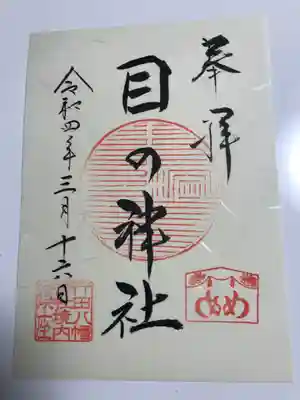 奉拝
目の神社
令和四年三月十六日
め